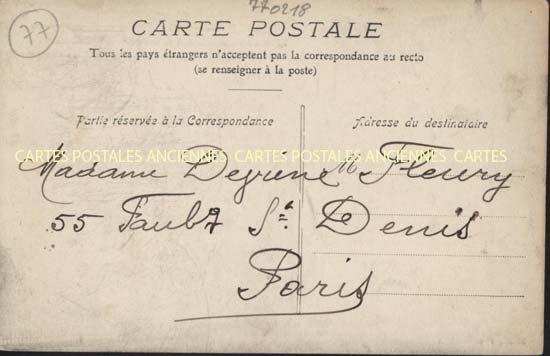 770218
77
CARTE POSTALE
Tous les pays étrangers n'acceptent pas la correspondance au recto
(se renseigner à la poste)
Partie réservée à la Correspondance
Adresse du destinataire
CARTES POSTALES ANCIENNES CARTES POSTALES ANCIENNES CARTES
Madame Fleury
55 Faubg St. Denis
Paris